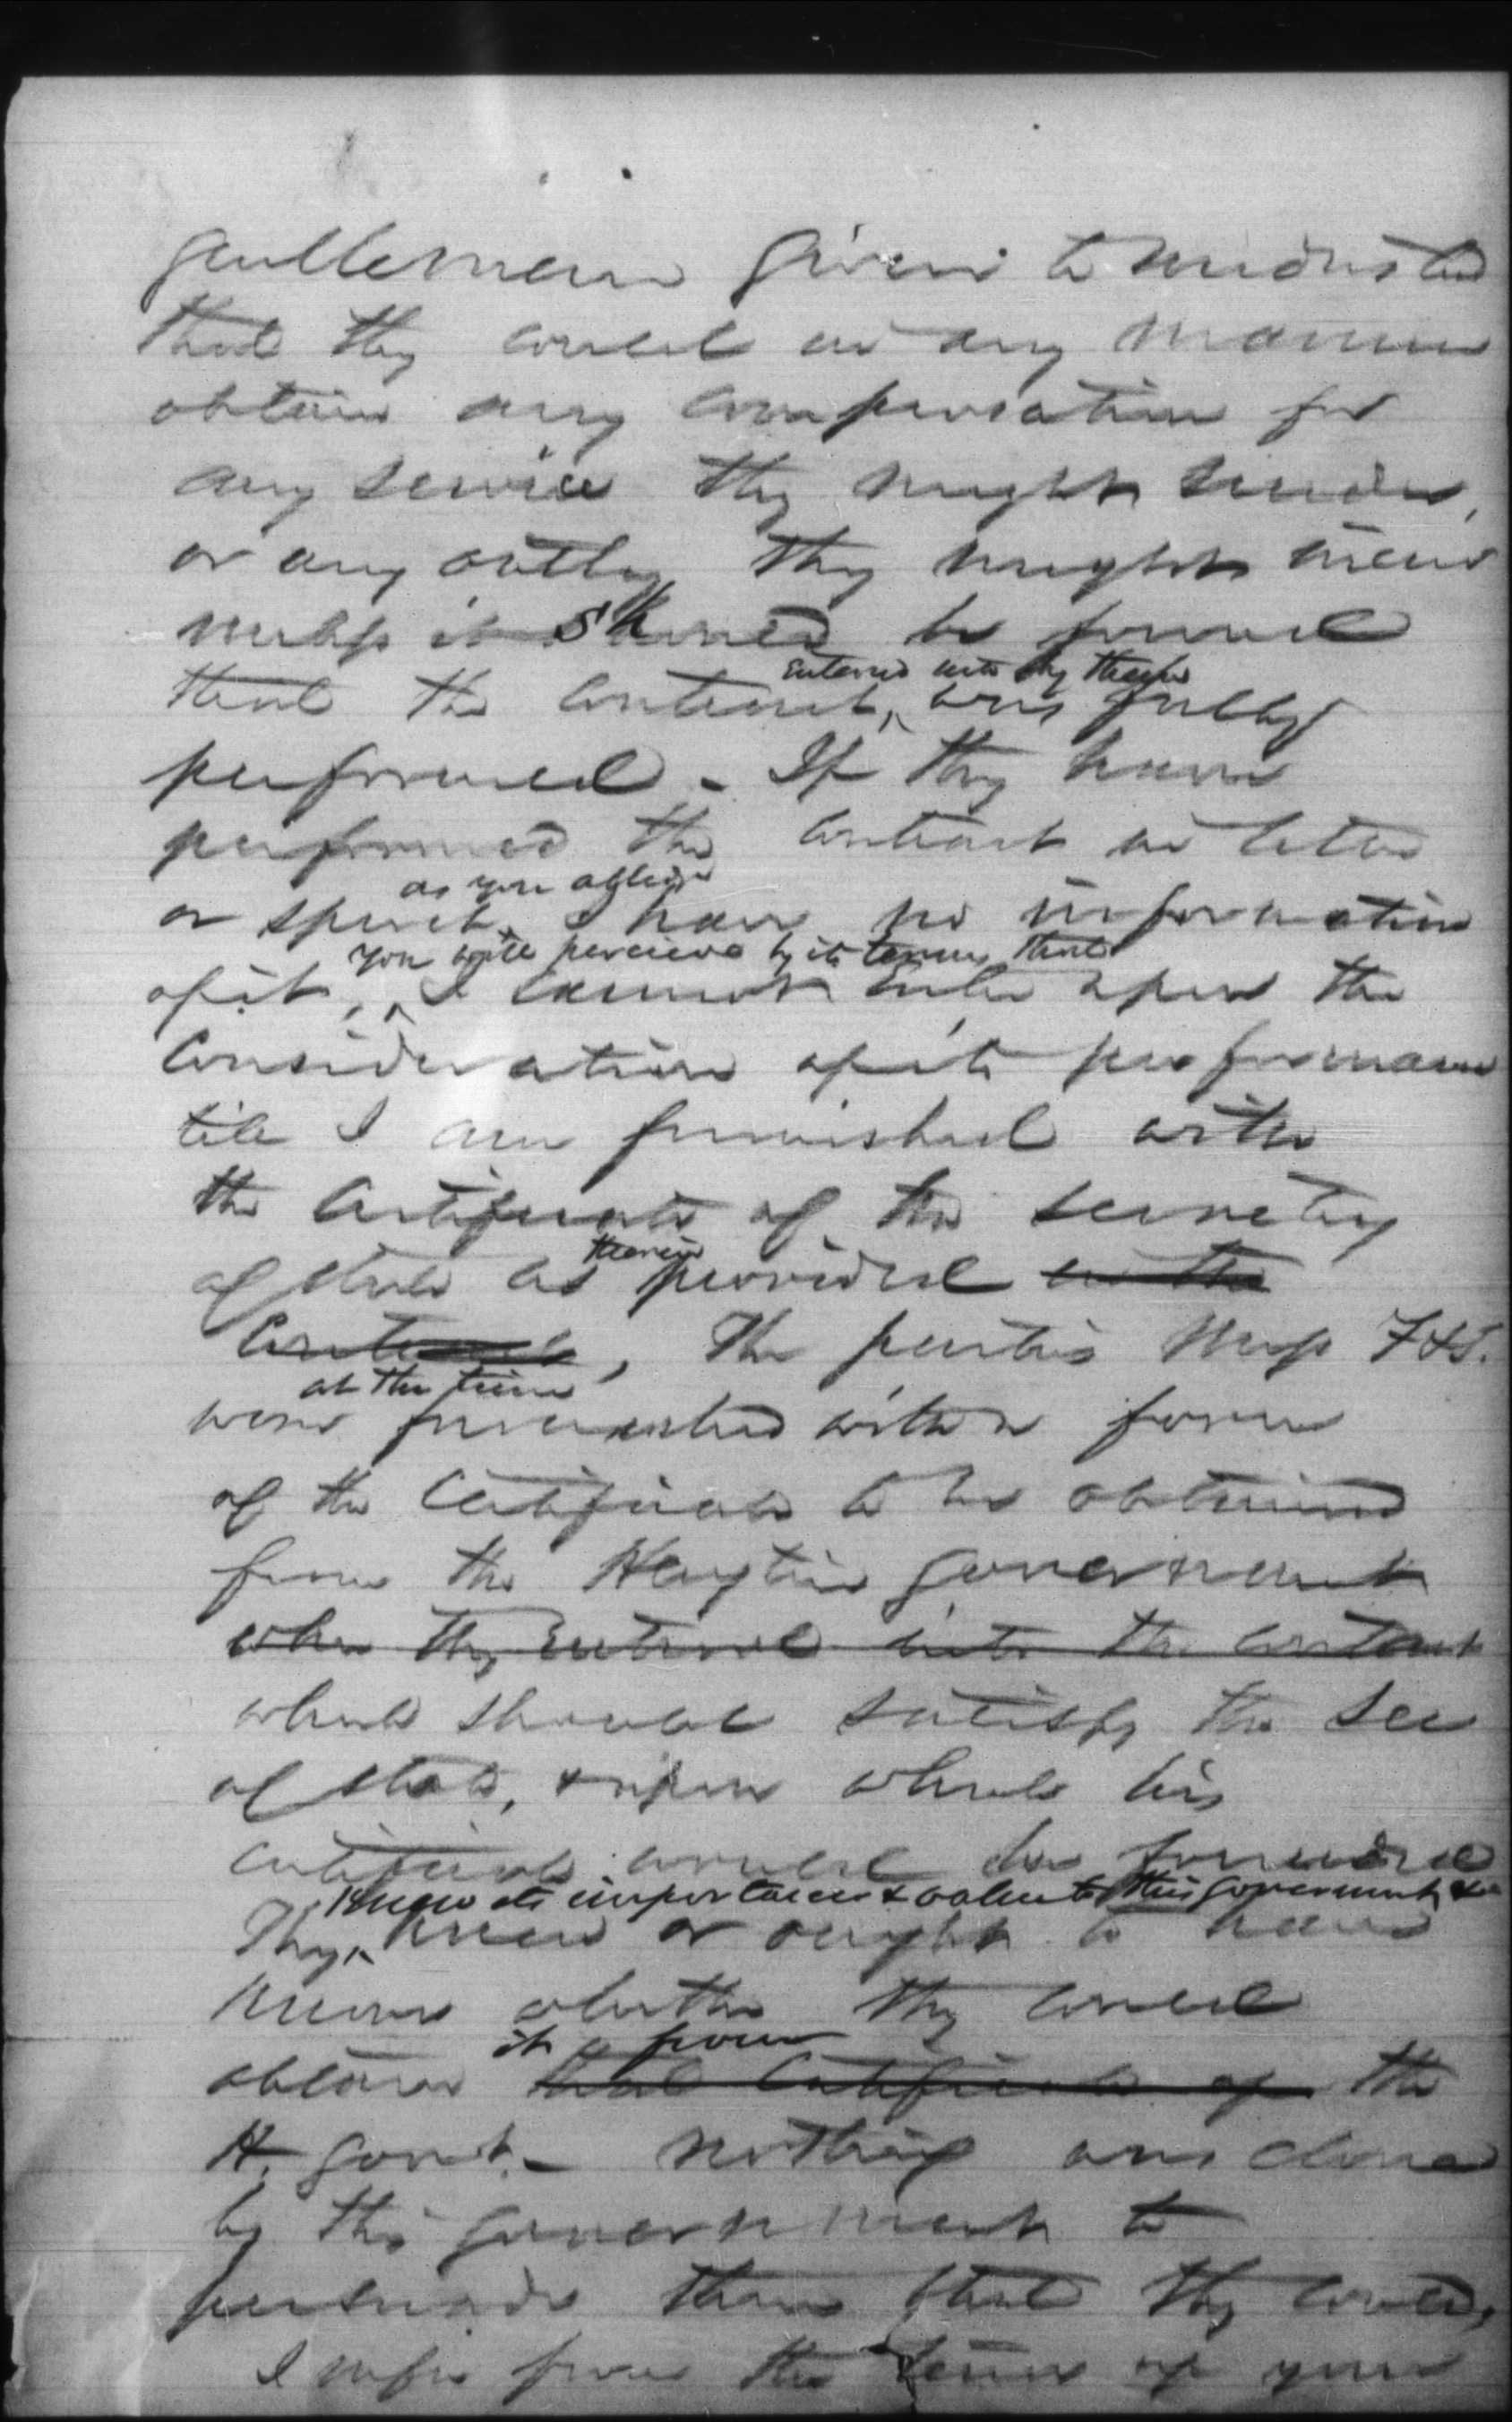 gentlemen given to understand
that they could in any manner
obtain any compensation for
any service they might render,
or any outlay they might incur
unless it should be found
entered into by them
that the contract, was fully
performed - If they have
performed the contract in letter
as you allege
or spirit, I have no information
you will perceive by its terms that
of it, I cannot enter upon the
consideration of its performance
till I am furnished with
the certificate of the secretary
therein
of state as provided in the
contract, The parties Messrs F & J.
at the time
were furnished with a form
of the certificate to be obtained
from the Haytien government
when they entered into the contract
which should satisfy the Sec
of State, & upon which his
certificate would be founded
knew its importance & value to this government &
They, knew or ought to have
known whether they could
it from
obtain that certificate of the
H. Govt. - nothing was done
by this government to
persuade them that they could,
I infer from the tenor of your